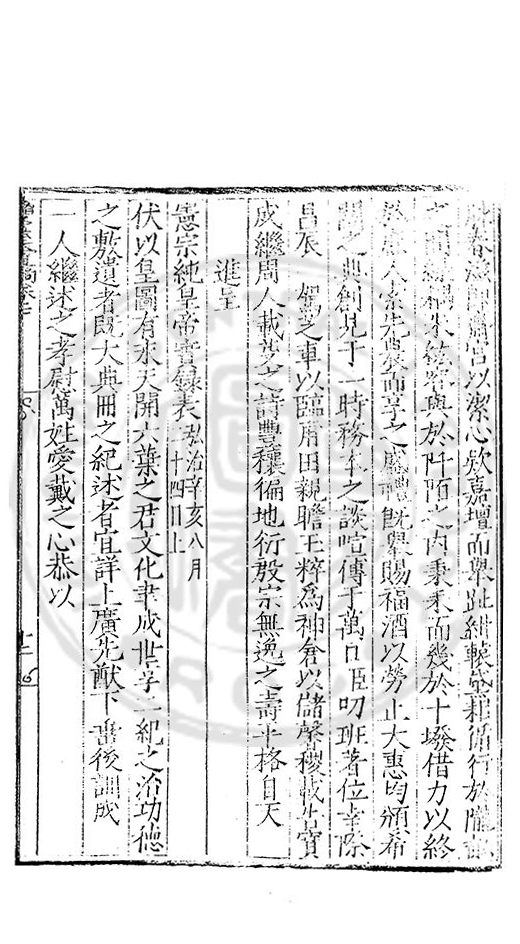 宮以潔心欸嘉壇而舉趾紺轅黛耜循行於隴
於阡陌之内秉耒而幾於十墢借力以終
人系先農而享之盛禮既舉賜福酒以勞止大惠均頒希
闊之典創見于一時務本之談喧傳于萬口臣叨班著位幸際
昌辰駕芝車以臨甫田親瞻玉粹爲神倉以儲馨稷載告寳
成繼周人載芟之詩豐穰徧地衍殷宗無逸之壽平格自天
進呈
憲宗純皇帝實錄表弘治辛亥八月二十四日上
伏以皇圖有永天開六葉之君文化聿成世孚二紀之洽功德
之敷遺者既大典冊之紀述者宜詳上廣先猷下垂後訓成
一人繼述之孝慰萬姓愛戴之心恭以